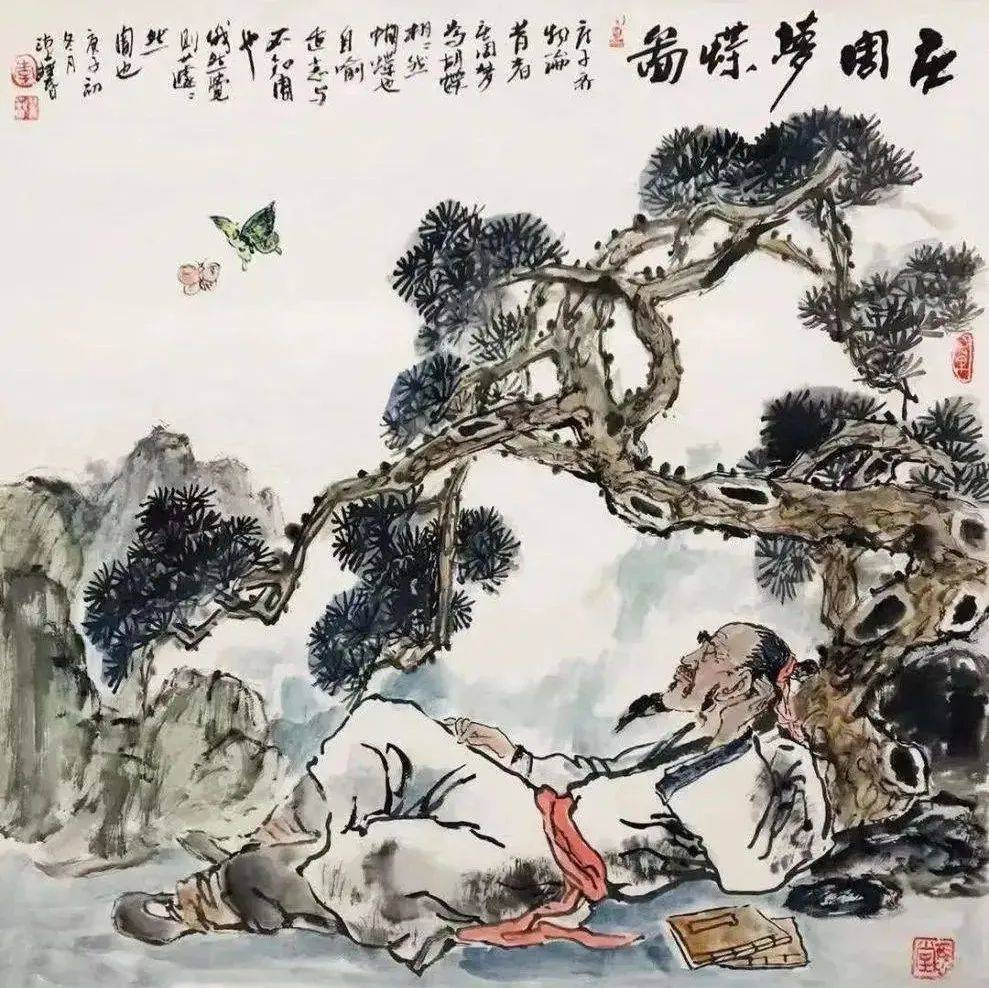 庄周夢蝶啚
庄子齐
物論
昔者
庄周梦
為胡蝶
栩〻然
蝴蝶也
自喻
适志与
不知周
也
俄然觉
则蘧〻
然
周也
庚子初
冬月